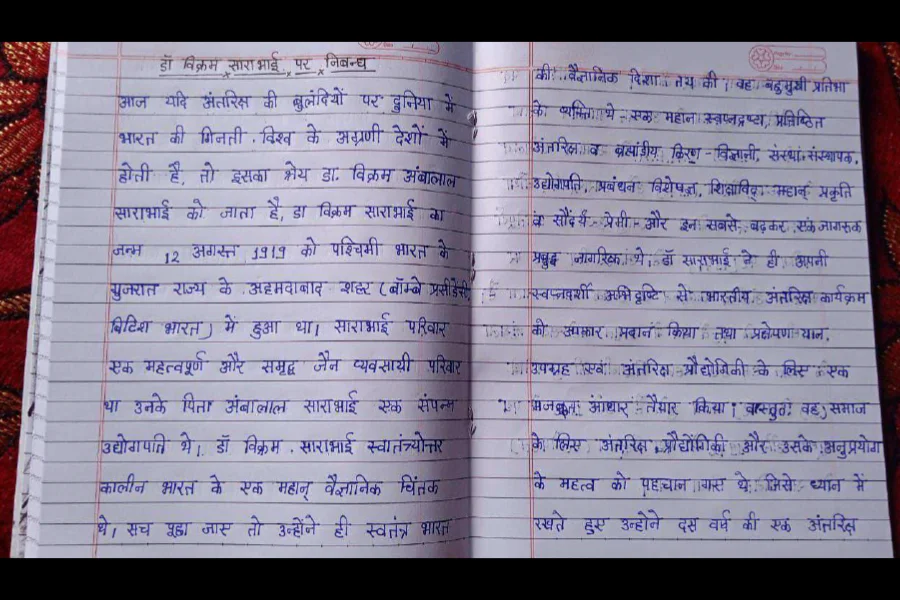 डॉ विक्रम साराभाई पर निबन्ध
आज यदि अंतरिक्ष की बुलंदियों पर दुनिया में
भारत की गिनती विश्व के अग्रणी देशों में
होती है, तो इसका श्रेय डा. विक्रम अंबालाल
साराभाई को जाता है, डा विक्रम साराभाई का
जन्म 12 अगस्त 1919 को पश्चिमी भारत के
गुजरात राज्य के अहमदाबाद शहर (बॉम्बे प्रसीडेंसी,
ब्रिटिश भारत) में हुआ था। साराभाई परिवार
एक महत्वपूर्ण और समृद्ध जैन व्यवसायी परिवार
था उनके पिता अंबालाल साराभाई एक संपन्न
उद्योगपति थे। डॉ विक्रम साराभाई स्वातंत्र्योत्तर
कालीन भारत के एक महान् वैज्ञानिक चिंतक
थे। सच पूछा जाए तो उन्होंने ही स्वतंत्र भारत
की वैज्ञानिक दिशा तय की। वह बहुमुखी प्रतिभा
के व्यक्ति थे एक महान स्वप्नद्रष्टा, प्रतिष्ठित
अंतरिक्ष व ब्रह्मांडीय किरण-विज्ञानी, संस्था-संस्थापक,
उद्योगपति, प्रबंधन विशेषज्ञ, शिक्षाविद्, महान् प्रकृति
व सौंदर्य-प्रेमी और इन सबसे बढ़कर एक जागरूक
प्रबुद्ध नागरिक थे। डॉ साराभाई ने ही अपनी
स्वप्नदर्शी अभिदृष्टि से भारतीय अंतरिक्ष कार्यक्रम
को आकार प्रदान किया तथा प्रक्षेपण यान,
उपग्रह एवं अंतरिक्ष प्रौद्योगिकी के लिए एक
मजबूत आधार तैयार किया। वास्तुतः वह, समाज
के लिए अंतरिक्ष प्रौद्योगिकी और उसके अनुप्रयोग
के महत्व को पहचान पाए थे जिसे ध्यान में
रखते हुए उन्होने दस वर्ष की एक अंतरिक्ष